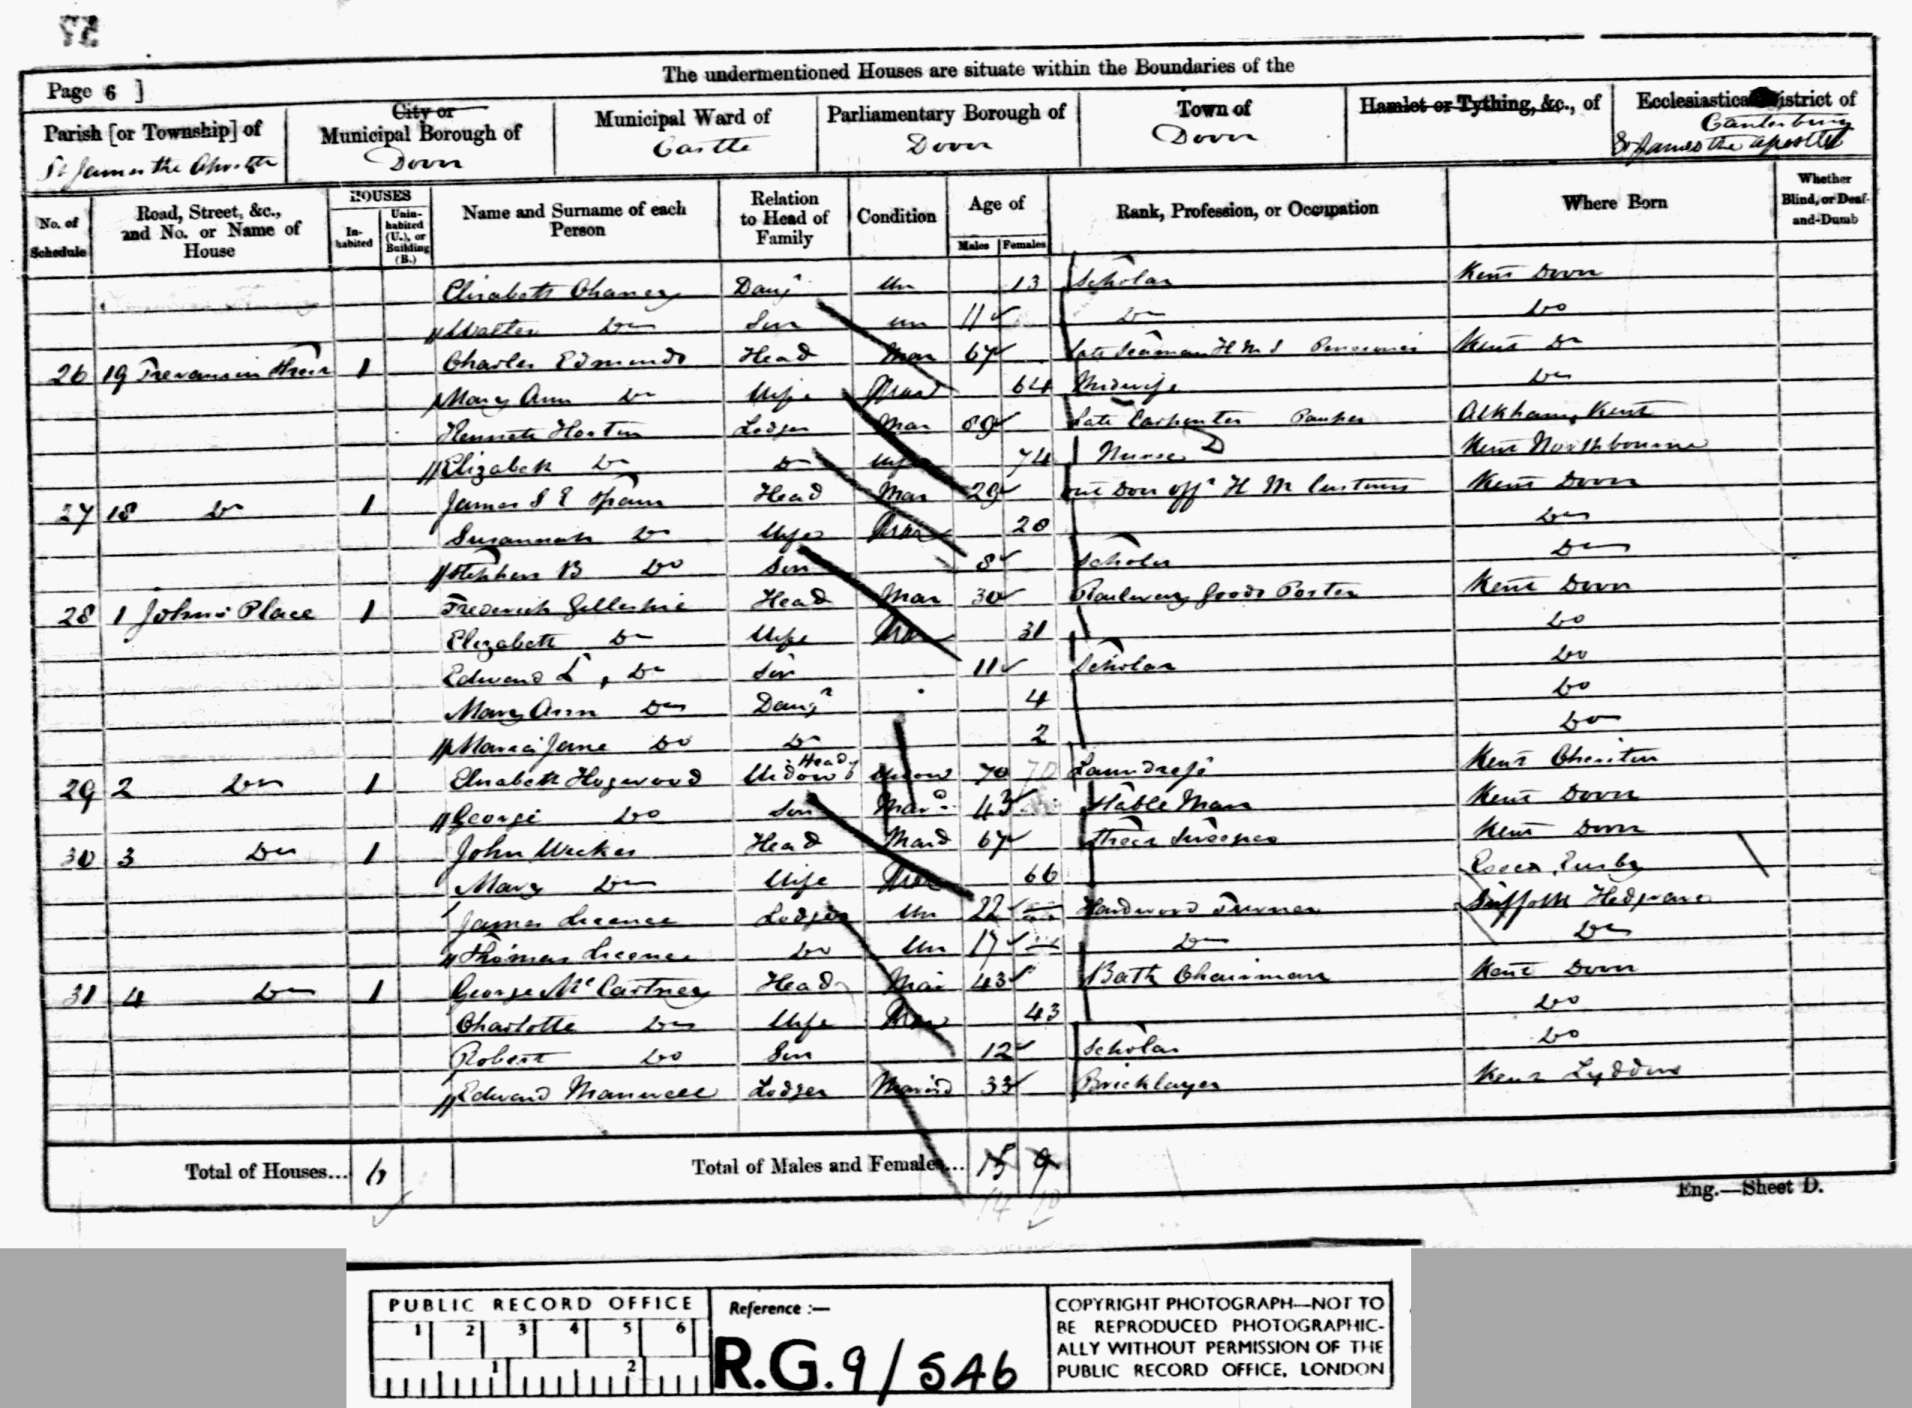 The undermentioned Houses are situate within the Boundaries of the
Page 6 ]
Parish [or Township] of
St James the Apostle
City or
Municipal Borough of
Dover
Municipal Ward of
Castle
Parliamentary Borough of
Dover
Town of
Dover
Hamlet or Tything, &c., of
Ecclesiastical District of
Canterbury
St James the Apostle
No. of Schedule
Road, Street, &c., and No. or Name of House
HOUSES
In-habited
Unin-habited (U.), or Building (B.)
Name and Surname of each Person
Relation to Head of Family
Condition
Age of
Males
Females
Rank, Profession, or Occupation
Where Born
Whether Blind, or Deaf-and-Dumb
Elizabeth Chaney Daugr Un 13 Scholar Kent Dover
Walter Do Son un 11 Do Do
26 19 Trevanion Street 1 Charles Edmunds Head Mar 67 Late Seaman H M S Pensioner Kent Do
Mary Ann Do Wife Mard 64 Midwife Do
Lodger Mar 89 Late Carpenter Pauper Alkham, Kent
Elizabeth Do Do Wife 74 Nurse Kent Northbourne
27 18 Do 1 James S E Spain Head Mar 29 out Door offr H M Customs Kent Dover
Susannah Do Wife Mar 28 Do
Stephen B Do Son 8 Scholar Do
28 1 Johns Place 1 Frederick Gillespie Head Mar 30 Railway Goods Porter Kent Dover
Elizabeth Do Wife Mar 31 Do
Edward L, Do Son 11 Scholar Do
Mary Ann Do Daugr 4 Do
Maria Jane Do Do 2 Do
29 2 Do 1 Elizabeth Hogwood Widow Head Widow 70 70 Laundress Kent Cheriton
George Do Son Mard 43 Stable Man Kent Dover
30 3 Do 1 John Weekes Head Mard 67 Street Sweeper Kent Dover
Mary Do Wife Mar 66 Essex
James Lodger Un 22 Hardwood Turner Suffolk
Thomas Do Un 17 Do Do
31 4 Do 1 George McCartney Head Mar 43 Bath Chairman Kent Dover
Charlotte Do Wife Mar 43 Do
Robert Do Son 12 Scholar Do
Edward Lodger Married 33 Bricklayer Kent Lydden
Total of Houses... 6
Total of Males and Females... 15 9
14 10
Eng.—Sheet D.
PUBLIC RECORD OFFICE
1 2 3 4 5 6
1 2
Reference :—
R.G. 9/546
COPYRIGHT PHOTOGRAPH—NOT TO
BE REPRODUCED PHOTOGRAPHIC-
ALLY WITHOUT PERMISSION OF THE
PUBLIC RECORD OFFICE, LONDON